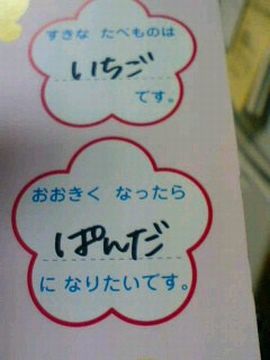 すきな たべものは
いちご
です。
おおきく なったら
ぱんだ
に なりたいです。